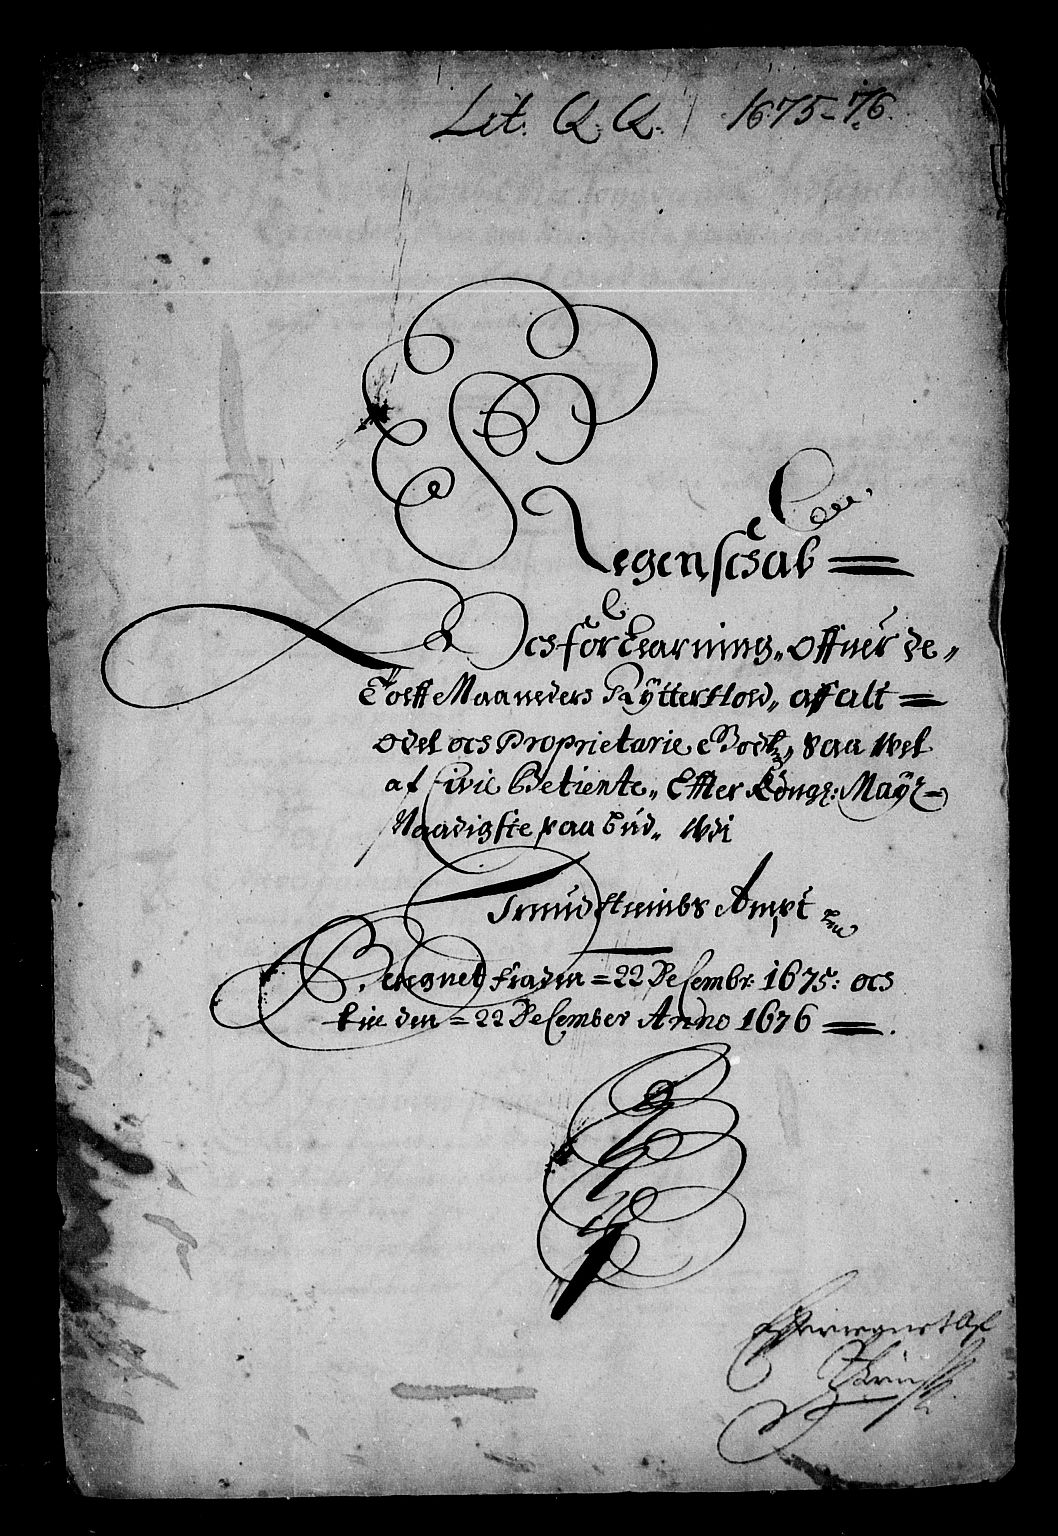 Lit. Q. Q. 1675-76.
Regenschab
Och forClarning, offuer de
Tolff Maaneders Rÿtterhold, aff alt
odel och Proprietarie Goedtz, saa wel
af Civil Betiente, Effter Kongl: Maÿtz
Naadigste paabud, Udi
Smudstrimbs Ampt
Beregnet fra den 22 Desembr: 1675: och
til den 22 Desember Anno 1676
Effterregnet af